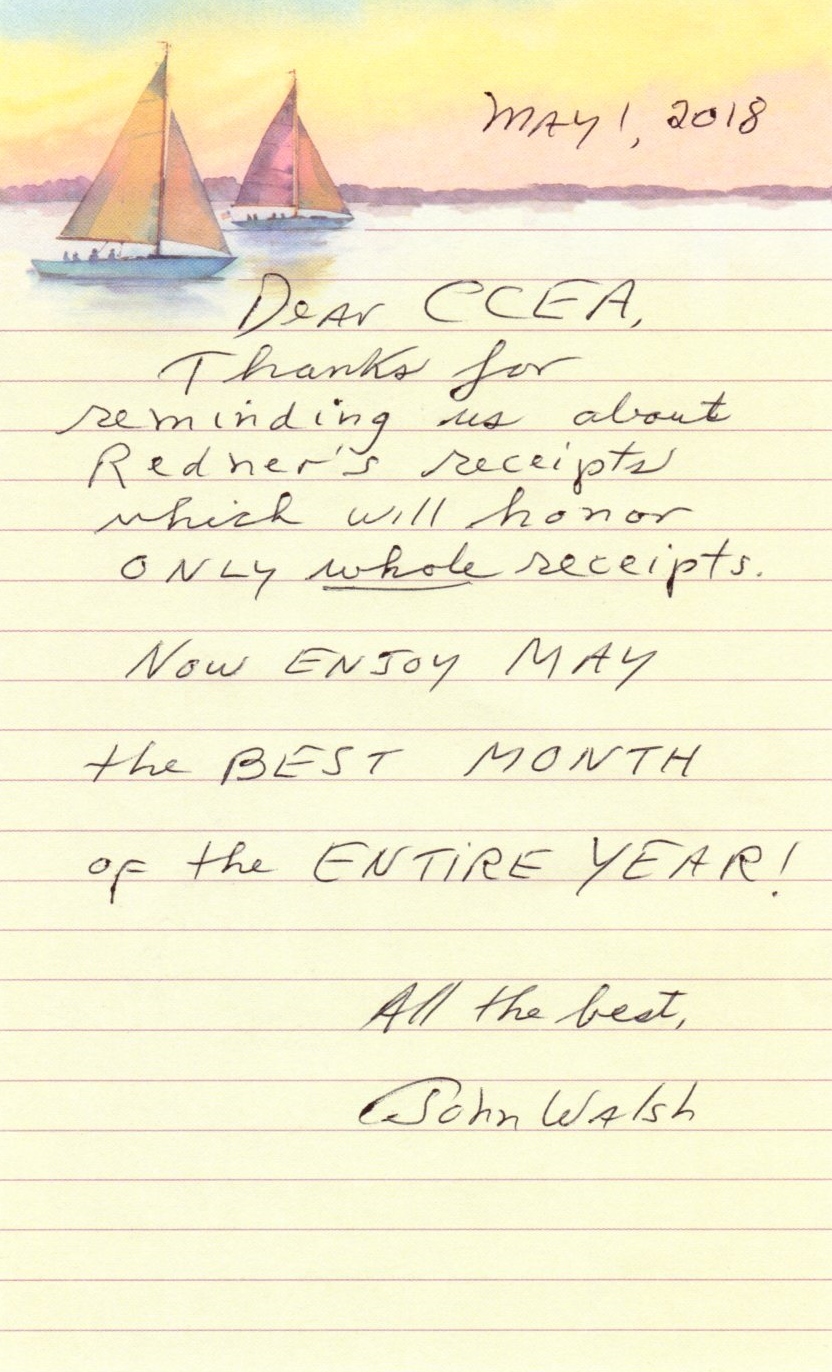 MAY 1, 2018
Dear CCEA,
Thanks for
reminding us about
Redner's receipts
which will honor
ONLY whole receipts.
NOW ENJOY MAY
the BEST MONTH
of the ENTIRE YEAR!
All the best,
John Walsh